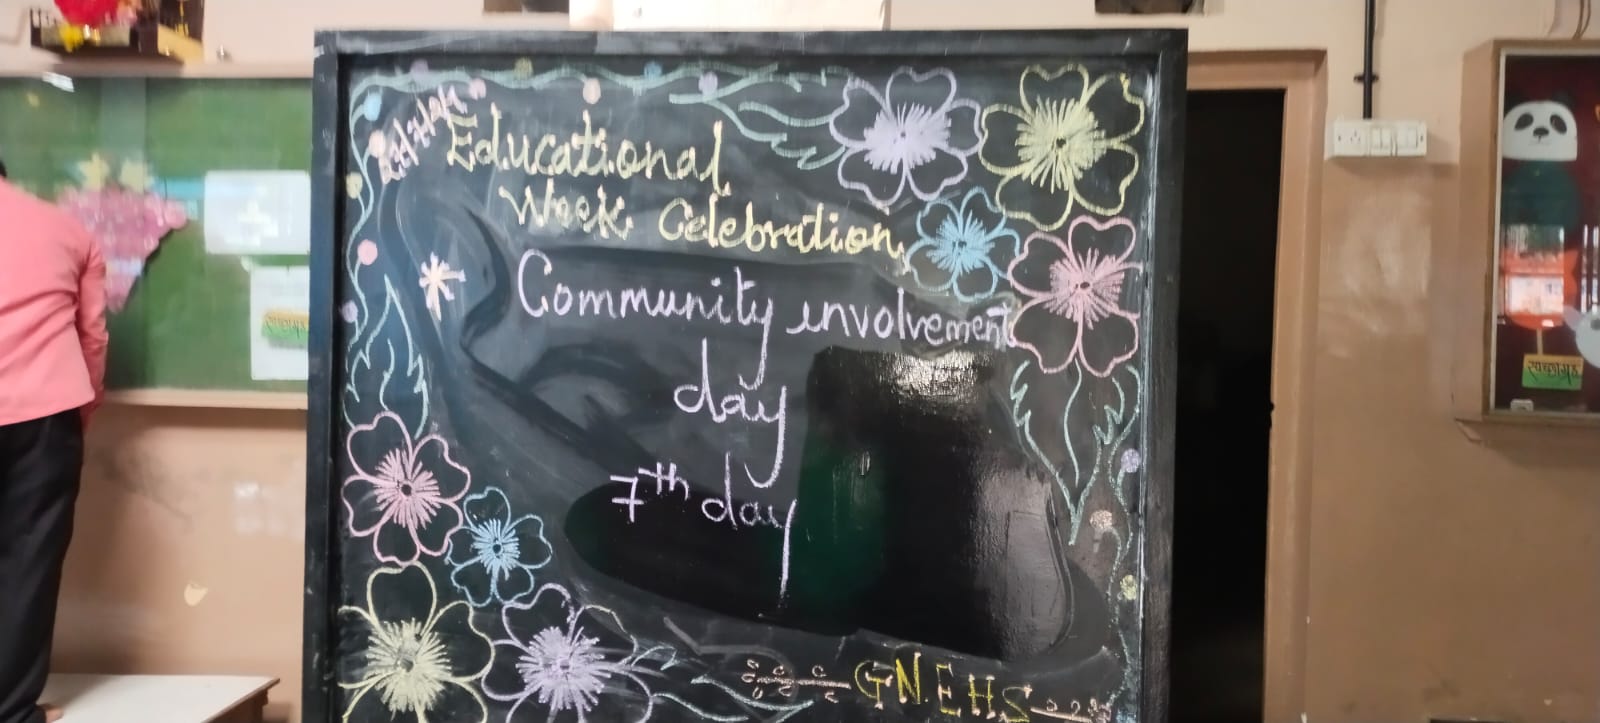 Educational
Week Celebration
Community involvement
day
7th day
G.N.E.H.S